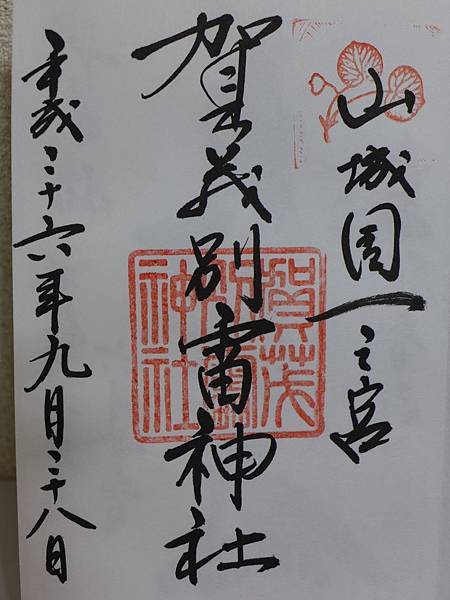 山城国一之宮
賀茂別雷神社
平成二十六年九月二十八日
賀茂
別雷
神社